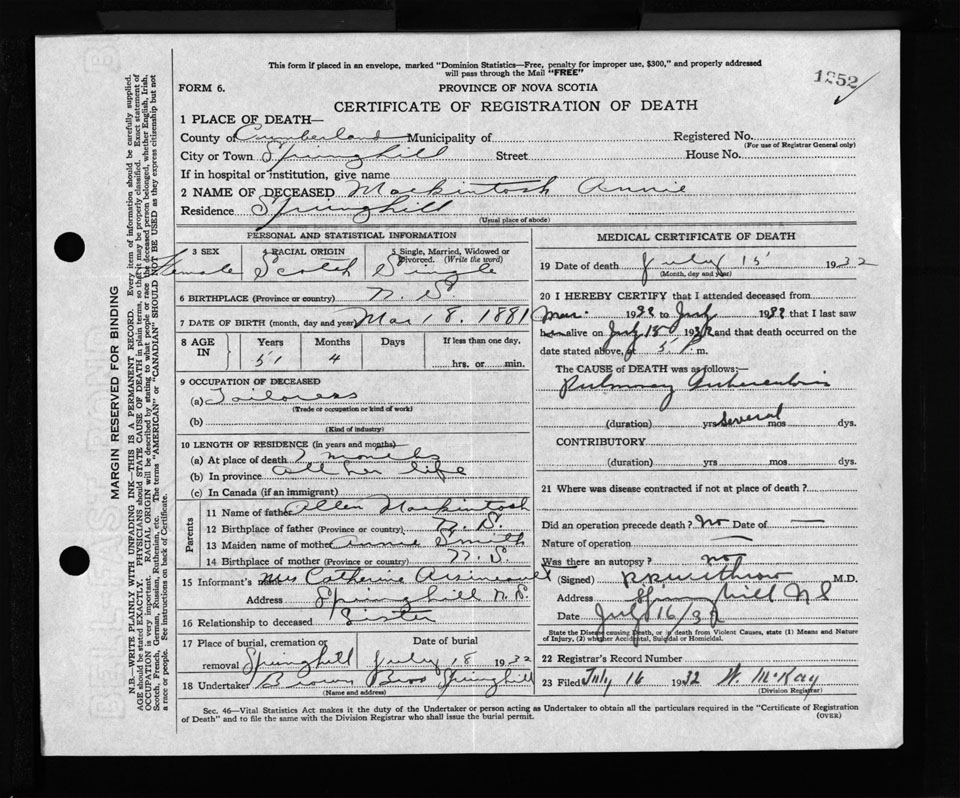 This form if placed in an envelope, marked "Dominion Statistics—Free, penalty for improper use, $300," and properly addressed
will pass through the Mail "FREE"
1252
FORM 6. PROVINCE OF NOVA SCOTIA
CERTIFICATE OF REGISTRATION OF DEATH
1 PLACE OF DEATH—
County of Cumberland Municipality of Registered No.
(For use of Registrar General only)
City or Town Springhill Street House No.
If in hospital or institution, give name
2 NAME OF DECEASED Mackintosh Annie
Residence Springhill
(Usual place of abode)
PERSONAL AND STATISTICAL INFORMATION
3 SEX 4 RACIAL ORIGIN 5 Single, Married, Widowed or Divorced. (Write the word)
Female Scotch Single
6 BIRTHPLACE (Province or country) N. S.
7 DATE OF BIRTH (month, day and year) Mar 18. 1881
8 AGE IN Years Months Days If less than one day.
51 4 hrs. or min.
9 OCCUPATION OF DECEASED
(a) Tailoress
(Trade or occupation or kind of work)
(b)
(Kind of industry)
10 LENGTH OF RESIDENCE (in years and months)
(a) At place of death 7 months
(b) In province all her life
(c) In Canada (if an immigrant)
Parents
11 Name of father Allen Mackintosh
12 Birthplace of father (Province or country) N. S.
13 Maiden name of mother Annie Smith
14 Birthplace of mother (Province or country) N. S.
15 Informant's name Mrs Catherine Arsineault
Address Springhill N. S.
16 Relationship to deceased Sister
17 Place of burial, cremation or removal Springhill Date of burial July 18 1932
18 Undertaker Brown Bros Springhill
(Name and address)
MEDICAL CERTIFICATE OF DEATH
19 Date of death July 15 1932
(Month, day and year)
20 I HEREBY CERTIFY that I attended deceased from
Mar. 1932 to July 1932 that I last saw
her alive on July 15 1932 and that death occurred on
date stated above, at 5 P m.
The CAUSE OF DEATH was as follows:—
Pulmonary Tuberculosis
(duration) yrs several mos dys.
CONTRIBUTORY
(duration) yrs mos dys.
21 Where was disease contracted if not at place of death?
Did an operation precede death? No Date of —
Nature of operation —
Was there an autopsy? no
(Signed) Withrow M.D.
Address Springhill N S
Date July 16/32
State the Disease causing Death, or is death from Violent Causes, state (1) Means and Nature
of Injury, (2) whether Accidental, Suicidal or Homicidal.
22 Registrar's Record Number
23 Filed July 16 1932 W. McKay
(Division Registrar)
Sec. 46—Vital Statistics Act makes it the duty of the Undertaker or person acting as Undertaker to obtain all the particulars required in the "Certificate of Registration
of Death" and to file the same with the Division Registrar who shall issue the burial permit. (OVER)
MARGIN RESERVED FOR BINDING
N.B.—WRITE PLAINLY WITH UNFADING INK—THIS IS A PERMANENT RECORD. Every item of information should be carefully supplied.
AGE should be stated EXACTLY. PHYSICIANS should STATE CAUSE OF DEATH in plain terms, so that it may be properly classified. Exact statement of
OCCUPATION is very important. RACIAL ORIGIN will be described by stating to what people or race the deceased person belonged, whether English, Irish,
Scotch, French, German, Russian, Ruthenian, etc. The terms "AMERICAN" or "CANADIAN" SHOULD NOT BE USED as they express citizenship but not
a race or people. See instructions on back of Certificate.